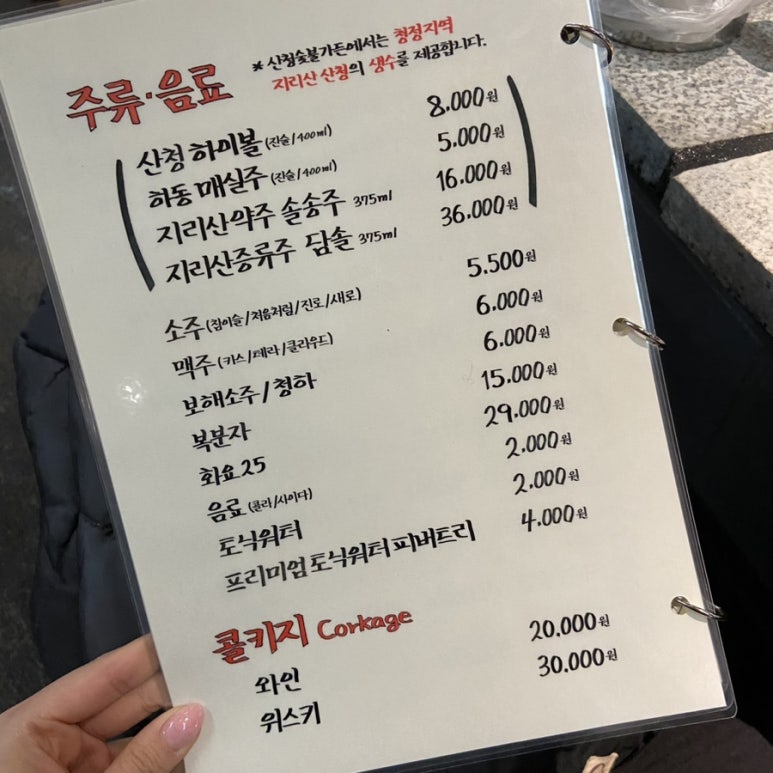 주류·음료
* 산청숯불가든에서는 청정지역
지리산 산청의 생수를 제공합니다.
산청 하이볼 (진술/400ml) 8.000원
하동 매실주 (진술/400ml) 5.000원
지리산약주 솔송주 375ml 16.000원
지리산증류주 담솔 375ml 36.000원
소주 (참이슬/처음처럼/진로/새로) 5.500원
맥주 (카스/테라/클라우드) 6.000원
보해소주/청하 6.000원
복분자 15.000원
화요25 29.000원
음료 (콜라/사이다) 2.000원
토닉워터 2.000원
프리미엄 토닉워터 피버트리 4.000원
콜키지 Corkage
와인 20.000원
위스키 30.000원